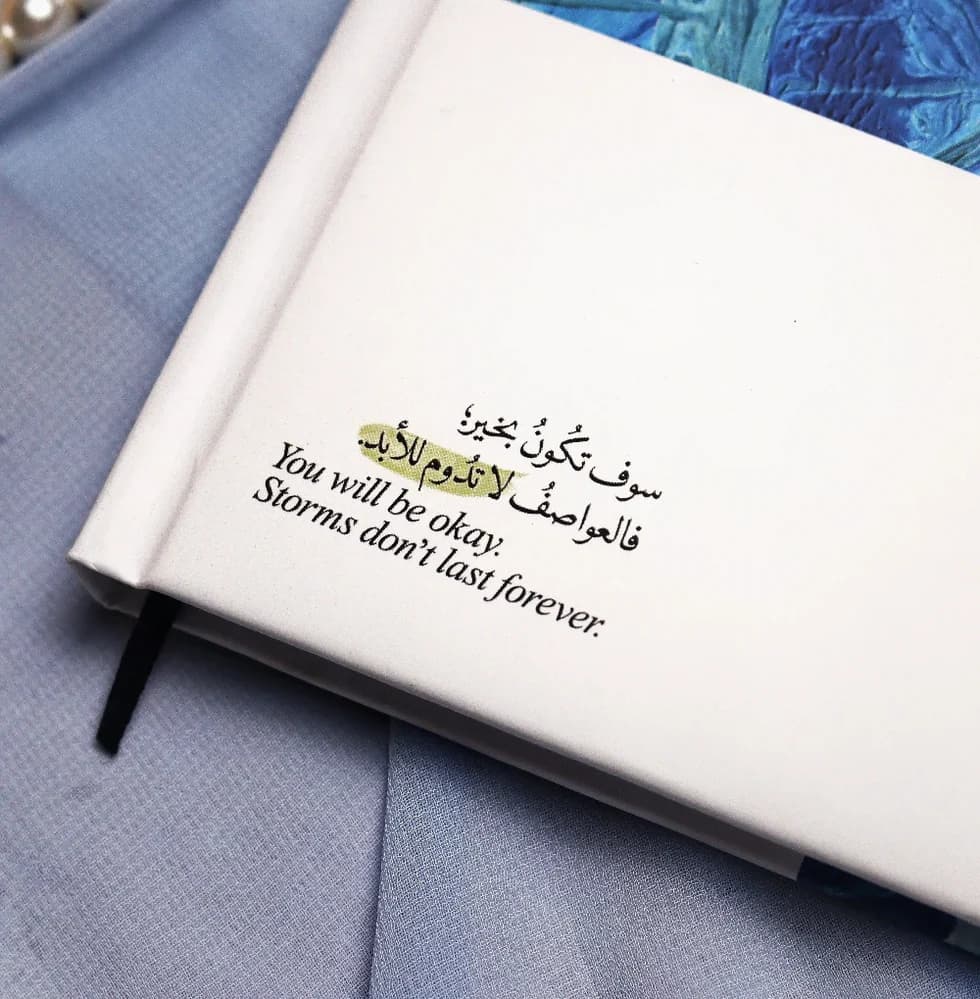 سوف تكُونُ بخير؛
فالعواصفُ لا تدُوم للأبد.
You will be okay.
Storms don't last forever.